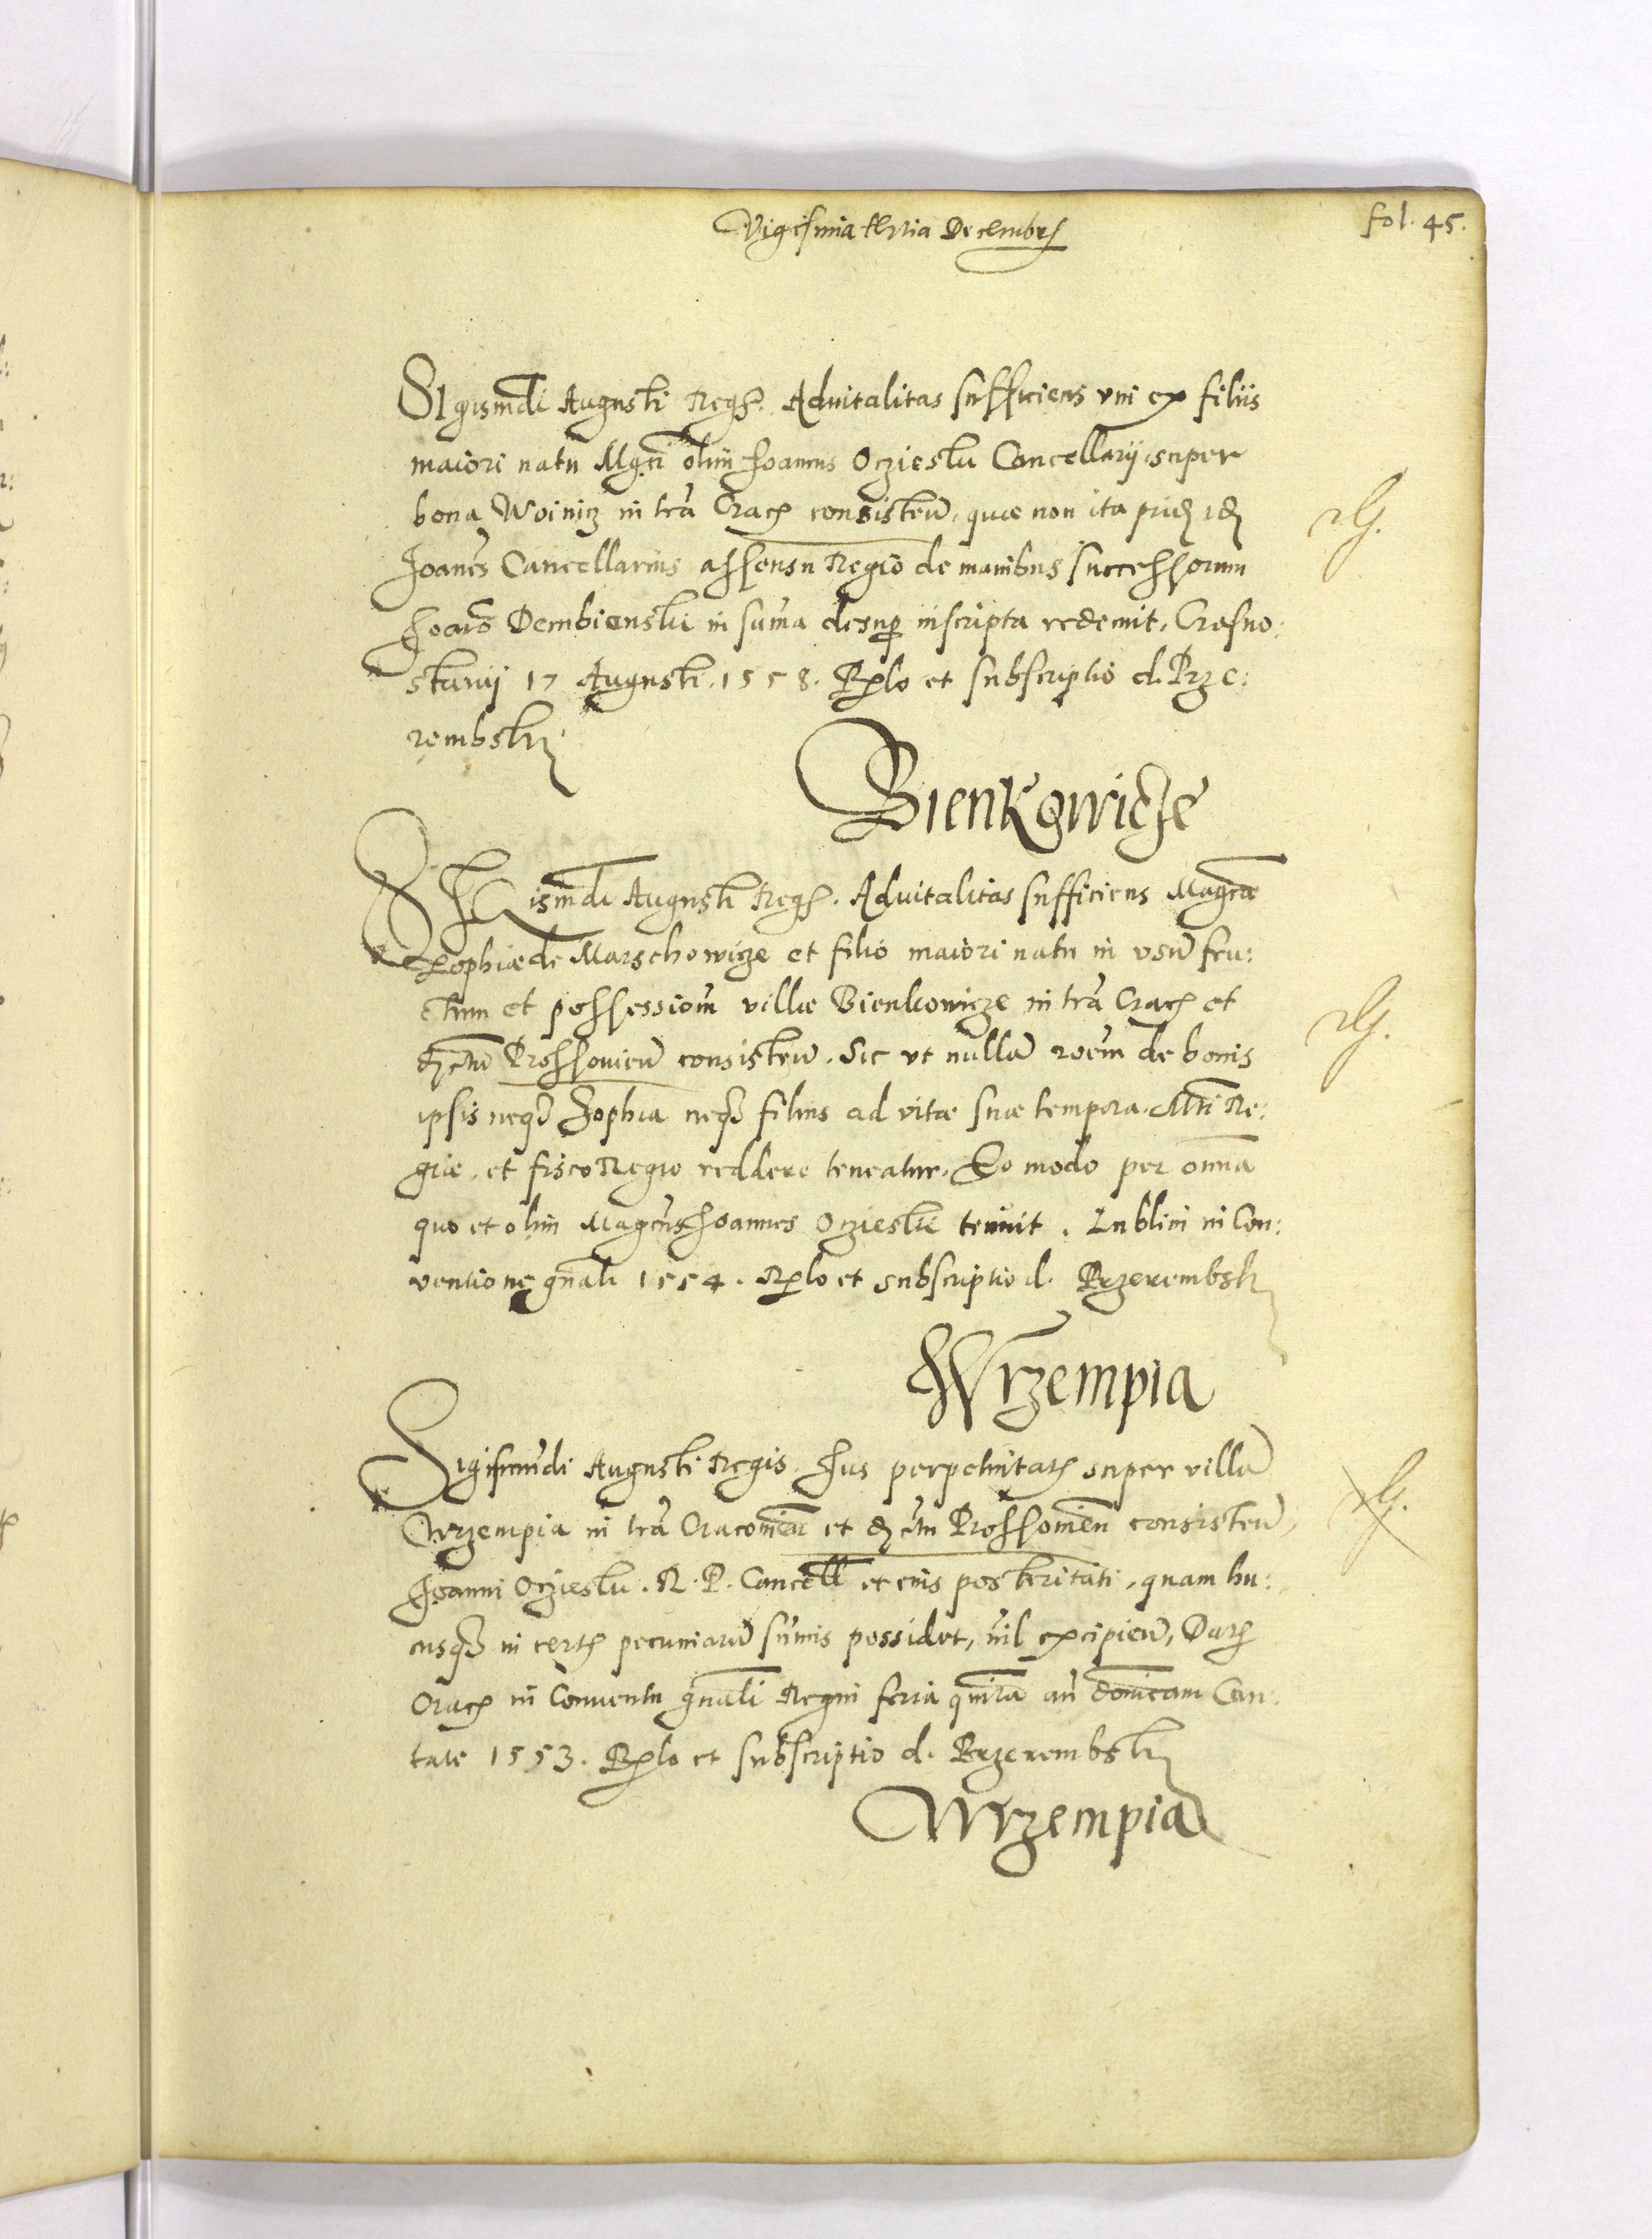 Vigesima tertia Decembris
fol. 45.
SIgismūdi Augusti Regs. Advitalitas sufficiens vni ex filiis
maiori natu Mgci olim Joannis Oczieski Cancellarij super
bona Woinicz in tra Crac consisteñ, quæ non ita pridē idē
Joanēs Cancellarius assensu Regio de manibus successorum
Joañs Dembienski in suma desup inscripta redemit, Crasno:
stavij 17 Augusti. 1558. Rlo et subscriptio d. Prze:
rembski
Bienkowicze
SIGismūdi Augusti Regs. Advitalitas sufficiens Magcæ
Zophiæ de Marschowicze et filio maiori natu in vsū fru:
ctum et possessionē villæ Bienkowicze in tra Crac et
dictu Prossovieñ consisteñ. Sic vt nullā roēm de bonis
ipsis neqз Zophia neqз filius ad vitæ suæ tempora Mti Re:
giæ, et fisco Regio reddere teneatur. Eo modo per omnia
quo et olim Magcus Joannes Oczieski tenuit. Lublini in Con:
ventione gnali 1554. Rlo et subscriptio d. Przerembski
Wrzempia
Sigismūdi Augusti Regis Jus perpetuitatis super villā
Wrzempia in tra Cracovieñ et dictu Prossovieñ consisteñ,
Joanni Oczieski. R. P. Cancell et eius posteritati, quam hu:
cusqз in certis pecuniarū sumis possidet, nil excipieñ, Datis
Crac in Conventu gnali Regni feria quinta an̄ dominicam Can:
tate 1553. Rlo et subscriptio d. Przerembski
Wrzempia